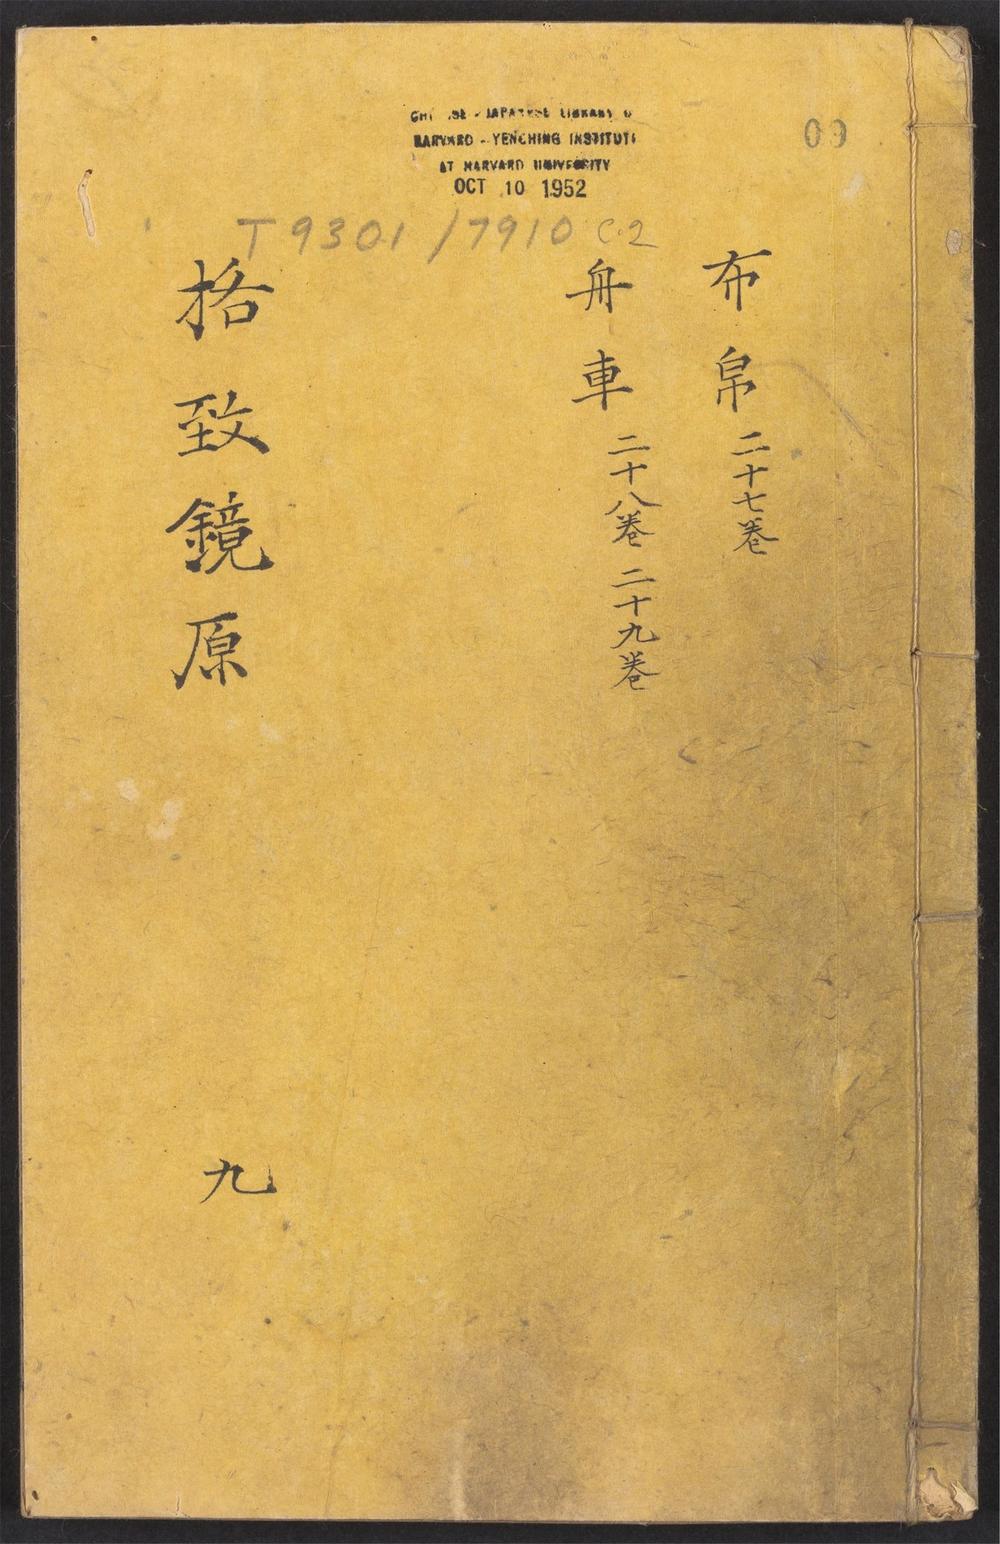 CHINESE - JAPANESE LIBRARY O
HARVARD - YENCHING INSTITUTE
AT HARVARD UNIVERSITY
OCT 10 1952
09
T 9301 /7910 C.2
布帛二十七卷
舟車二十八卷 二十九卷
格致鏡原
九